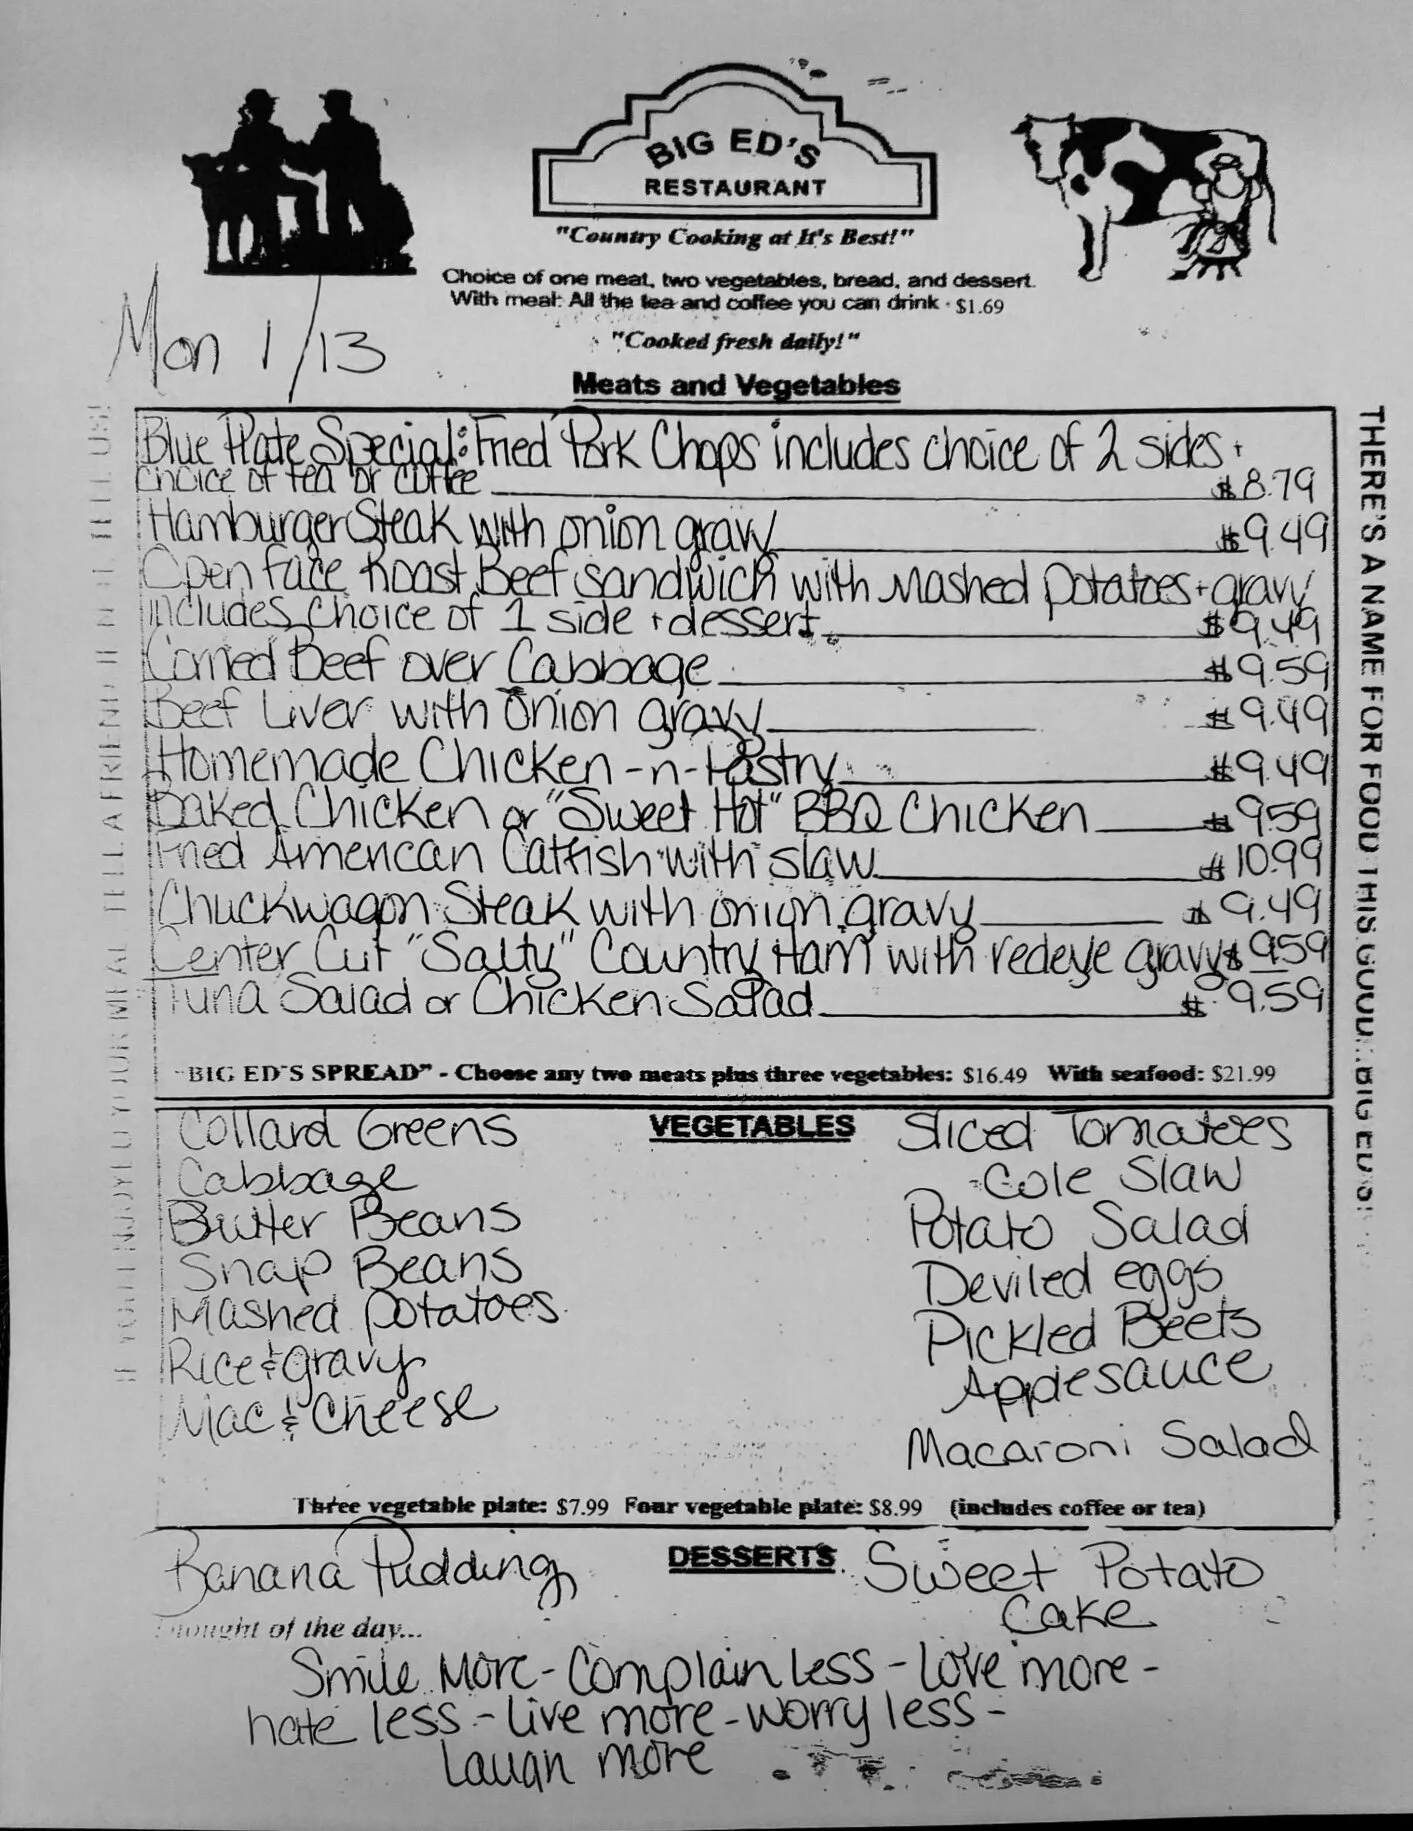 BIG ED'S
RESTAURANT
"Country Cooking at It's Best!"
Choice of one meat, two vegetables, bread, and dessert.
With meal: All the tea and coffee you can drink - $1.69
"Cooked fresh daily!"
Mon 1/13
Meats and Vegetables
Blue Plate Special: Fried Pork Chops includes choice of 2 sides +
choice of tea or coffee $8.79
Hamburger Steak with onion gravy $9.49
Open face Roast Beef sandwich with Mashed potatoes + gravy
includes choice of 1 side + dessert $9.49
Corned Beef over Cabbage $9.59
Beef Liver with Onion gravy $9.49
Homemade Chicken-n-Pastry $9.49
Baked Chicken or "Sweet Hot" BBQ Chicken $9.59
Fried American Catfish with slaw $10.99
Chuckwagon Steak with onion gravy $9.49
Center Cut "Salty" Country Ham with redeye gravy $9.59
Tuna Salad or Chicken Salad $9.59
"BIG ED'S SPREAD" - Choose any two meats plus three vegetables: $16.49 With seafood: $21.99
VEGETABLES
Collard Greens
Cabbage
Butter Beans
Snap Beans
Mashed potatoes
Rice & gravy
Mac & Cheese
Sliced Tomatoes
Cole Slaw
Potato Salad
Deviled eggs
Pickled Beets
Applesauce
Macaroni Salad
Three vegetable plate: $7.99 Four vegetable plate: $8.99 (includes coffee or tea)
DESSERTS
Banana Pudding
Sweet Potato
Cake
Thought of the day...
Smile More - Complain Less - Love more -
hate less - Live more - worry less -
Laugh more
IF YOU ENJOYED YOUR MEAL TELL A FRIEND IF NOT TELL US!
THERE'S A NAME FOR FOOD THIS GOOD...BIG ED'S!